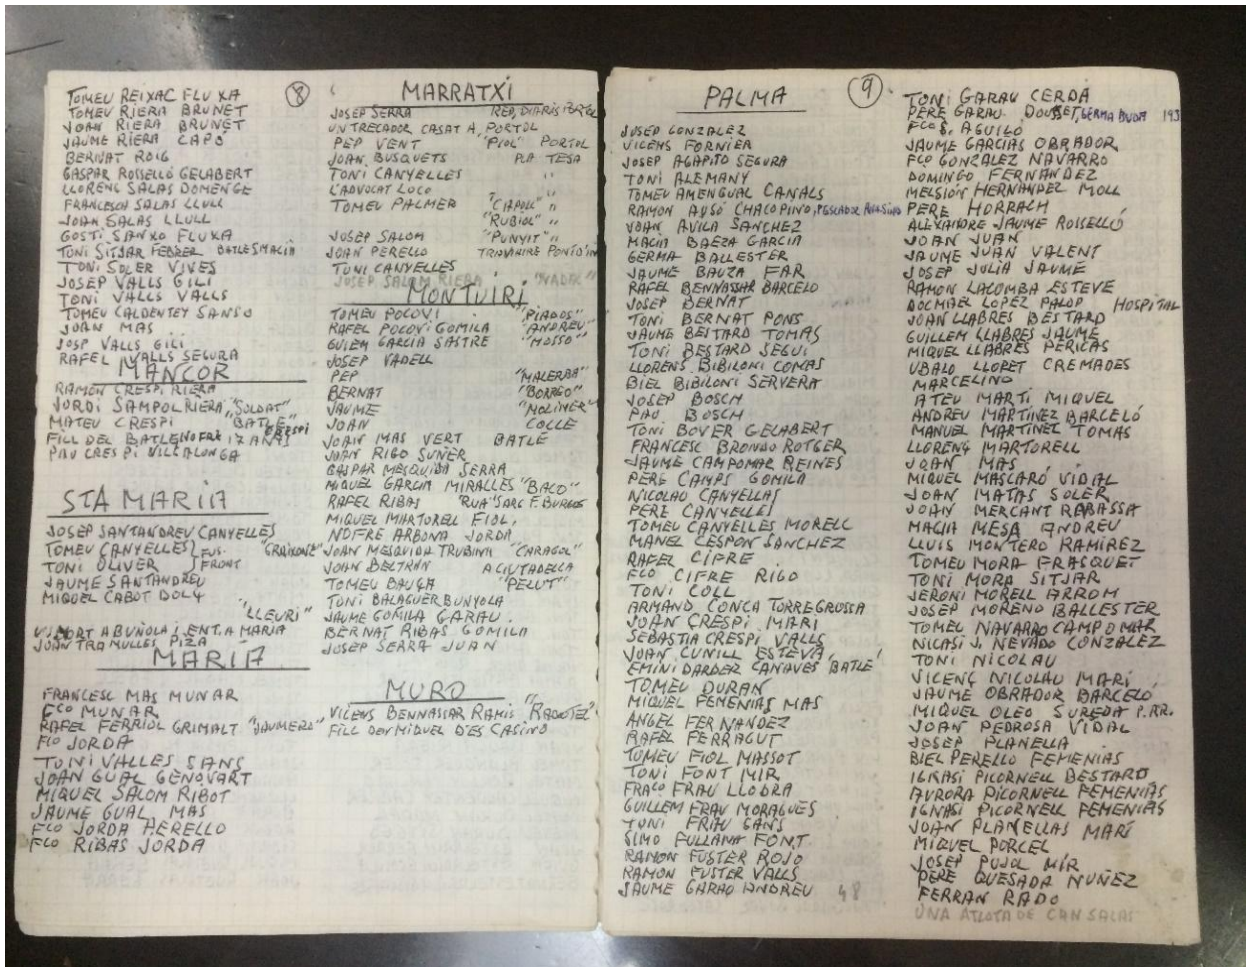 8
TOMEU REIXAC FLUXA
TOMEU RIERA BRUNET
JOAN RIERA BRUNET
JAUME RIERA CAPO
BERNAT ROIG
GASPAR ROSSELLO GELABERT
LLORENS SALAS DOMENGE
FRANCESCH SALAS LLULL
JOAN SALAS LLULL
GOSTI SANXO FLUXA
TONI SITJAR FEBRER BATLE SMACIA
TONI SOLER VIVES
JOSEP VALLS GILI
TONI VALLS VALLS
TOMEU CALDENTEY SANSO
JOAN MAS
JOSP VALLS GILI
RAFEL VALLS SEGURA
MANCOR
RAMON CRESPI RIERA
JORDI SAMPOL RIERA "SOLDAT"
MATEU CRESPI "BATLE"
FILL DEL BATLE NOFRE CRESPI 17 ANYS
PAU CRESPI VILLALONGA
STA MARIA
JOSEP SANTANDREU CANYELLES
TOMEU CANYELLES FUS.
TONI OLIVER FRONT
JAUME SANTANDREU
MIQUEL CABOT DOLÇ
"LLEURI"
MORT A BUÑOLA i ENT. A MARIA
JOAN TRAMULLES PIZA
MARIA
FRANCESC MAS MUNAR
FCO MUNAR
RAFEL FERRIOL GRIMALT "JAUMERO"
FCO JORDA
TONI VALLES SANS
JOAN GUAL GENOVART
MIQUEL SALOM RIBOT
JAUME GUAL MAS
FCO JORDA HERELLO
FCO RIBAS JORDA
MARRATXI
JOSEP SERRA REP. DIARIS PORTOL
UN TRECADOR CASAT A PORTOL
PEP VENT "PIOL" PORTOL
JOAN BUSQUETS PLA TESA
TONI CANYELLES "
L'ADVOCAT LOCO
TOMEU PALMER "CAPOLL" "
"RUBIOL" "
JOSEP SALOM "PUNYIT" "
JOAN PERELLO TRANVIAIRE PONT D'IN
TONI CANYELLES
JOSEP SALOM RIERA "NADEL"
MONTUIRI
TOMEU POCOVI "PIADOS"
RAFEL POCOVI GOMILA "ANDREU"
GUIEM GARCIA SASTRE "MOSSO"
JOSEP VADELL
PEP "MALERBA"
BERNAT "BORREO"
JAUME "MOLINER"
JOAN COLLE
JOAN MAS VERT BATLE
JOAN RIGO SUNER
GASPAR MESQUIDA SERRA
MIQUEL GARCIA MIRALLES "BACO"
RAFEL RIBAS "RUA" SARG F. BURGOS
MIQUEL MARTORELL FIOL,
NOFRE ARBONA JORDA
"GRAIXONE" JOAN MESQUIDA TRUBINA "CARAGOL"
JOAN BELTRAN A CIUTADELLA
TOMEU BAUÇA "PELUT"
TONI BALAGUER BUNYOLA
JAUME GOMILA GARAU.
BERNAT RIBAS GOMILA
JOSEP SERRA JUAN
MURO
VICENS BENNASSAR RAMIS "RAGOTEL"
FILL DEN MIQUEL D'ES CASINO
9
PALMA
JOSEP GONZALEZ
VICENS FORNIER
JOSEP AGAPITO SEGURA
TONI ALEMANY
TOMEU AMENGUAL CANALS
RAMON AUSO CHACOPINO, PESCADOR
JOAN AVILA SANCHEZ
MACIA BAEZA GARCIA
GERMA BALLESTER
JAUME BAUZA FAR
RAFEL BENNASSAR BARCELO
JOSEP BERNAT
TONI BERNAT PONS
JAUME BESTARD TOMAS
TONI BESTARD SEGUI
LLORENS BIBILONI COMAS
BIEL BIBILONI SERVERA
JOSEP BOSCH
PAU BOSCH
TONI BOVER GELABERT
FRANCESC BRONDO ROTGER
JAUME CAMPOMAR REINES
PERE CAMPS GOMILA
NICOLAU CANYELLAS
PERE CANYELLES
TOMEU CANYELLES MORELL
MANEL CESPON SANCHEZ
RAFEL CIFRE
FCO CIFRE RIGO
TONI COLL
ARMAND CONCA TORREGROSSA
JOAN CRESPI MARI
SEBASTIA CRESPI VALLS
JOAN CUNILL ESTEVA,
EMINI DARDER CANAVES BATLE
TOMEU DURAN
MIQUEL FEMENIAS MAS
ANGEL FERNANDEZ
RAFEL FERRAGUT
TOMEU FIOL MASSOT
TONI FONT MIR
FRACO FRAU LLOBRA
GUILLEM FRAU MORAGUES
TONI FRAU SANS
SIMO FULLANA FONT
RAMON FUSTER ROJO
RAMON FUSTER VALLS
JAUME GARAO ANDREU 48
TONI GARAU CERDÁ
PERE GARAU DOUSSET, GERMA 193
FCO S. AGUILO
JAUME GARCIAS OBRADOR
FCO GONZALEZ NAVARRO
DOMINGO FERNANDEZ
MELSION HERNANDEZ MOLL
PERE HORRACH
ALEXANDRE JAUME ROSSELLÓ
JOAN JUAN
JAUME JUAN VALENT
JOSEP JULIA JAUME
RAMON LACOMBA ESTEVE
DOCMAEL LOPEZ PALOP HOSPITAL
JOAN LLABRES BESTARD
GUILLEM LLABRES JAUME
MIQUEL LLABRES PERICAS
UBALO LLORET CREMADES
MARCELINO
ATEU MARTI MIQUEL
ANDREU MARTINEZ BARCELÓ
MANUEL MARTINEZ TOMAS
LLORENÇ MARTORELL
JOAN MAS
MIQUEL MASCARÓ VIDAL
JOAN MATAS SOLER
JOAN MERCANT RABASSA
MACIA MESA ANDREU
LLUIS MONTERO RAMIREZ
TOMEU MORA FRASQUET
TONI MORA SITJAR
JERONI MORELL ARROM
JOSEP MORENO BALLESTER
TOMEU NAVARRO CAMPOMAR
NICASI J. NEVADO GONZALEZ
TONI NICOLAU
VICENÇ NICOLAU MARI
JAUME OBRADOR BARCELÓ
MIQUEL OLEO SUREDA P.RR.
JOAN PEDROSA VIDAL
JOSEP PLANELLA
BIEL PERELLO FEMENIAS
IGNASI PICORNELL BESTARD
AURORA PICORNELL FEMENIAS
IGNASI PICORNELL FEMENIAS
JOAN PLANELLAS MARÍ
MIQUEL PORCEL
JOSEP PUJOL MIR
PERE QUESADA NUÑEZ
FERRAN RADO
UNA ATLOTA DE CAN SALAS